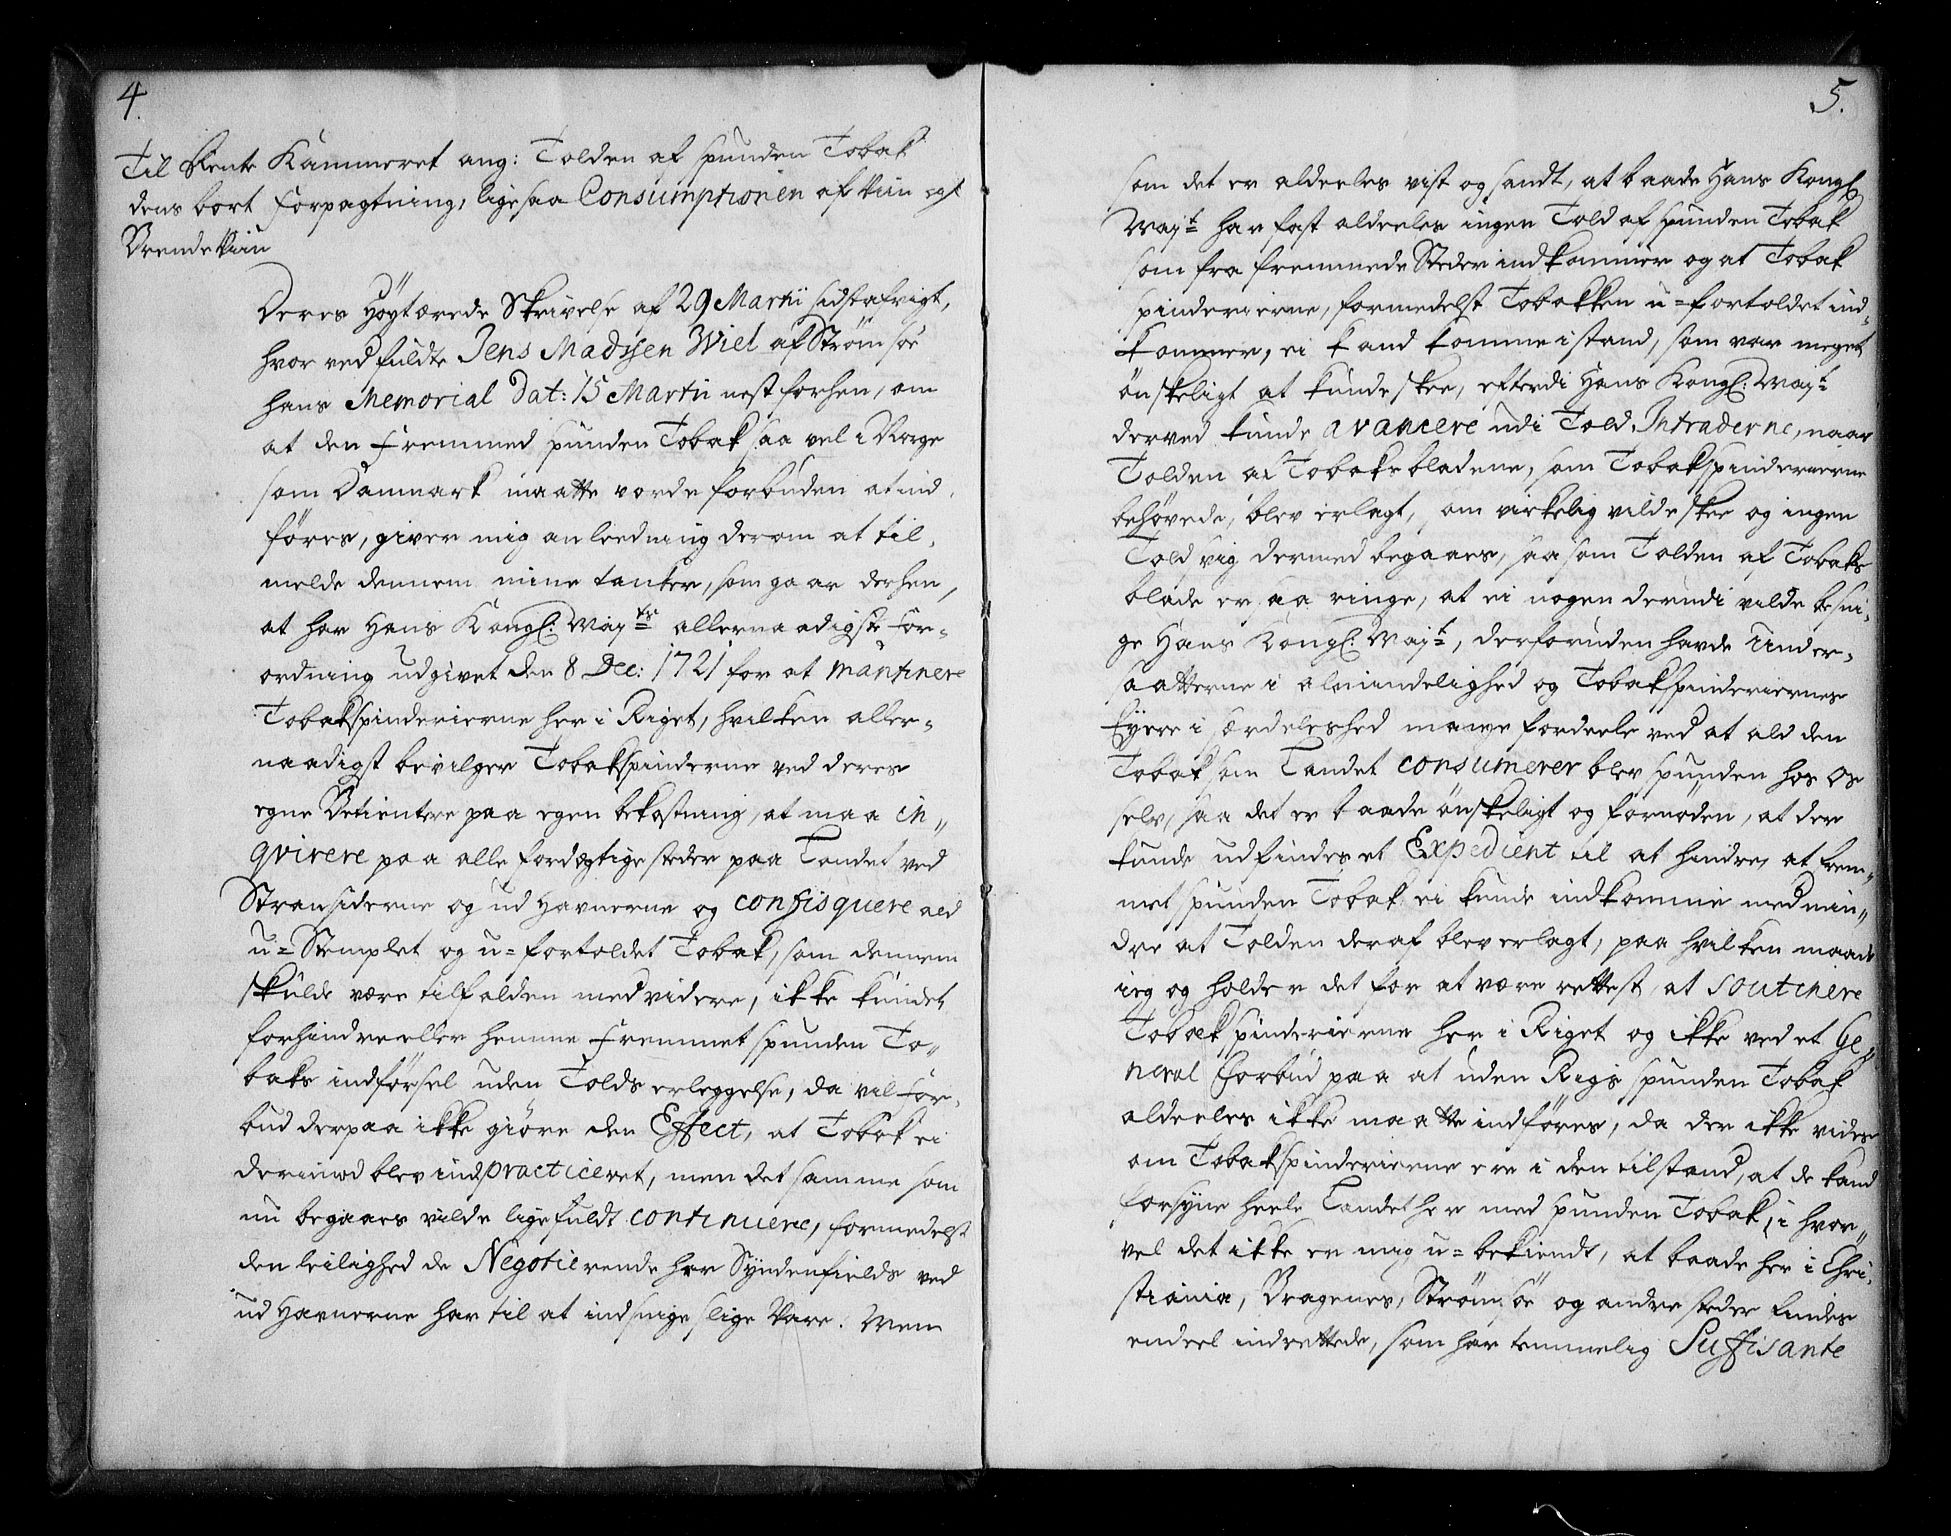 4.
Til Rente Kammeret ang: Tolden af spunden Tobak
dens bort forpagtning, ligesaa Consumptionen af Viin og
Brendeviin
Deres Höytærede Skrivelse af 29 Martii sidstafvigt,
hvor ved fuldte Jens Madsen Wiel af Strömsöe
hans Memorial Dat: 15 Martii nest forhen, om
at den fremmed spunden Tobak saa vel i Norge
som Danmark maatte vorde forbuden at ind-
föres, giver mig anleedning derom at til-
melde dennem mine tanker, som gaar derhen,
at har Hans Kongl: Mayts allernaadigste For-
ordning udgivet den 8 Dec: 1721 for at mantinere
Tobakspinderierne her i Riget, hvilken aller-
naadigst bevilger Tobakspinderne ved deres
egne Betientere paa egen bekostning, at maa in„
qvirere paa alle fordægtige steder paa Landet ved
Stransiderne og ud Havnerne og confisquere ald
u=Stemplet og u=fortoldet Tobak, som dennem
skulde være tilfalden med videre, ikke kundet
forhindre eller hemme fremmet spunden To„
baks indförsel uden Tolds erleggelse, da vil For-
bud derpaa ikke giöre den Effect, at Tobak ei
derimod blev indpracticeret, men det samme som
nu begaaes vilde lige fuldt continuere, formedelst
den leilighed de Negotierende her Syndenfields ved
ud Havnerne har til at indsnige slige Vare. Men
5.
som det er aldeeles vist og sandt, at baade Hans Kongl
Mayt har fast aldeeles ingen Told af spunden Tobak
som fra fremmede Steder indkommer og at Tobak
spinderierne, formedelst Tobakken u=fortoldet ind-
kommer, ei kand komme i stand, som var meget
önskeligt at kunde skee, efterdi Hans Kongl: Mayt
derved kunde avancere udi Told Intraderne, naar
Tolden af Tobaksbladene, som Tobakspinderierne
behövede, blev erlagt, om virkelig vilde skee og ingen
Told svig dermed begaaes, saasom Tolden af Tobaks
blade er saa ringe, at ei nogen derudi vilde besvi-
ge Hans Kongl: Mayt, derforuden havde Under-
saatterne i almindelighed og Tobakspinderiernes
Eyere i særdeleshed mange fordeele ved at ald den
Tobak som Landet consumerer blev spunden hos os
selv, saa det er baade önskeligt og fornöden, at der
kunde udfindes et Expedient til at hindre, at frem„
met spunden Tobak ei kunde indkomme med min„
dre at Tolden deraf blev erlagt, paa hvilken maade
ieg og holder det for at være rettest, at soutinere
Tobakspinderierne her i Riget og ikke ved et Ge„
neral Forbud paa at uden Rigs spunden Tobak
aldeeles ikke maatte indföres, da der ikke vides
om Tobakspinderierne ere i den tilstand, at de kand
forsyne heele Landet her med spunden Tobak, i hvor„
vel det ikke er mig u=bekiendt, at baade her i Chri-
stiania, Bragenes, Strömsöe og andre steder findes
endeel indrettede, som har temmelig Suffisante